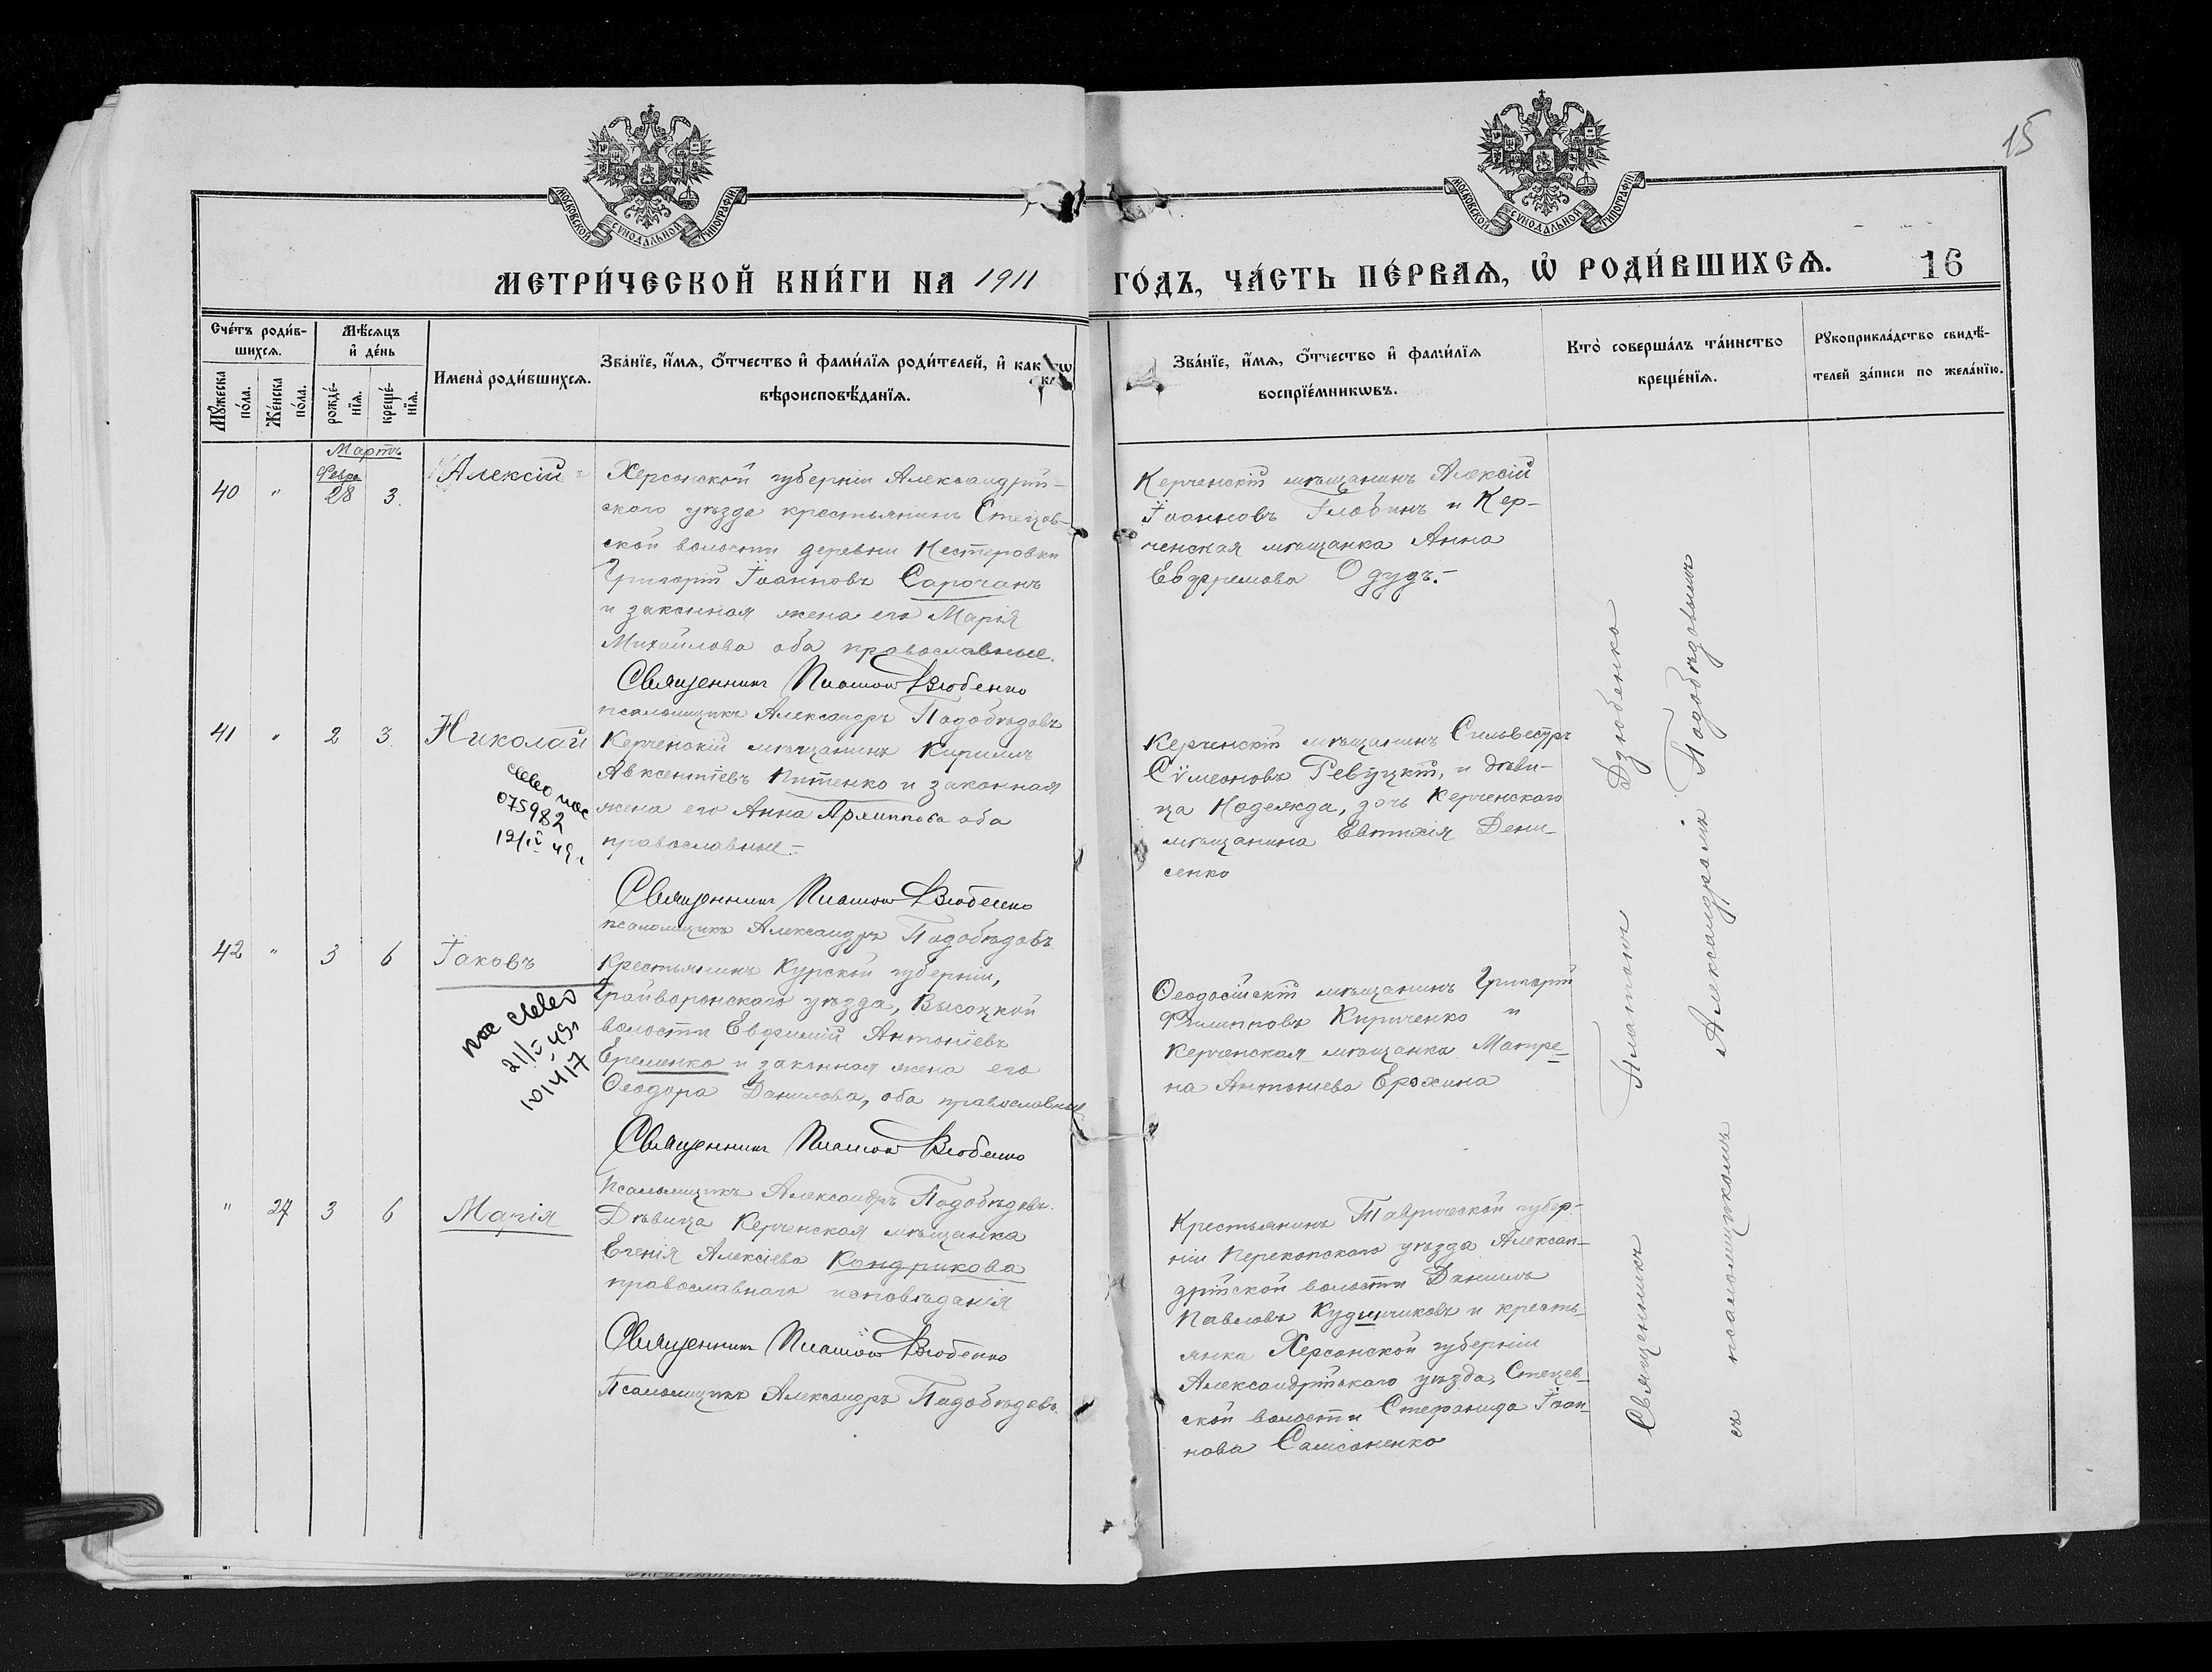 МОСКОВСКОЙ СѴНОДАЛЬНОЙ ТИПОГРАФІИ
МОСКОВСКОЙ СѴНОДАЛЬНОЙ ТИПОГРАФІИ
15
МЕТРИ́ЧЕСКОЙ КНИ́ГИ НА 1911 ГО́ДЪ, ЧА́СТЬ ПЕ́РВАѦ, Ѽ РОДИ́ВШИХСѦ. 16
Сче́тъ роди́в-
шихсѧ.
Мꙋ́жеска по́ла.
Же́нска по́ла.
Мѣ́сѧцъ
и҆ де́нь
рожде́-
нїѧ.
креще́-
нїѧ.
Имена̀ роди́вшихсѧ.
Зва́нїе, и҆́мѧ, ѻ҆́тчество и҆ фами́лїѧ роди́телей, и҆ как
вѣроисповѣ́данїѧ.
Зва́нїе, и҆́мѧ, ѻ҆́тчество и҆ фами́лїѧ
воспрїе́мникѡвъ.
Кто̀ соверша́лъ та́инство
креще́нїѧ.
Рꙋкоприкла́дство свидѣ́-
телей за́писи по жела́нїю.
Мартъ
Февр.
40 " 28 3.
Алексій
Херсонской губерніи Александрій-
скаго уѣзда крестьянинъ Стецов-
ской волости деревни Нестеровки
Григорій Іоанновъ Сарочанъ
и законная жена его Марія
Михайлова оба православные.
Священникъ Платонъ Дзюбенко
псаломщикъ Александръ Подобѣдовъ
Керченскій мѣщанинъ Алексій
Іоанновъ Глобинъ и Кер-
ченская мѣщанка Анна
Евфремова Одудъ.-
41 " 2 3.
Николай
075982
12/IV 49 г.
Керченскій мѣщанинъ Кириллъ
Авксентіевъ Питенко и законная
жена его Анна Архиппова оба
православные.-
Священникъ Платонъ Дзюбенко
псаломщикъ Александръ Подобѣдовъ
Керченскій мѣщанинъ Сильвестръ
Сѵмеоновъ Ревуцкій, и дѣви-
ца Надежда, дочь Керченскаго
мѣщанина Евтихія Дени-
сенко
42 " 3 6
Іаковъ
101417
Крестьянинъ Курской губерніи,
Грайворонскаго уѣзда, Высоцкой
волости Евфимій Антоніевъ
Еременко и законная жена его
Ѳеодора Данилова, оба православные
Священникъ Платонъ Дзюбенко
Псаломщикъ Александръ Подобѣдовъ.
Ѳеодосійскій мѣщанинъ Григорій
Филипповъ Кириченко и
Керченская мѣщанка Матре-
на Антоніева Ерохина
" 27 3 6
Марія
Дѣвица Керченская мѣщанка
Евгенія Алексіева Кондрикова
православнаго исповѣданія
Священникъ Платонъ Дзюбенко
Псаломщикъ Александръ Подобѣдовъ.
Крестьянинъ Таврической губер-
ніи Перекопскаго уѣзда Алексан-
дрійской волости Даніилъ
Павловъ Кудинчиковъ и кресть-
янка Херсонской губерніи
Александрійскаго уѣзда, Стецев-
ской волости Стефанида Іоан-
нова Самсоненко
Священникъ Платонъ Дзюбенко
съ псаломщикомъ Александромъ Подобѣдовымъ